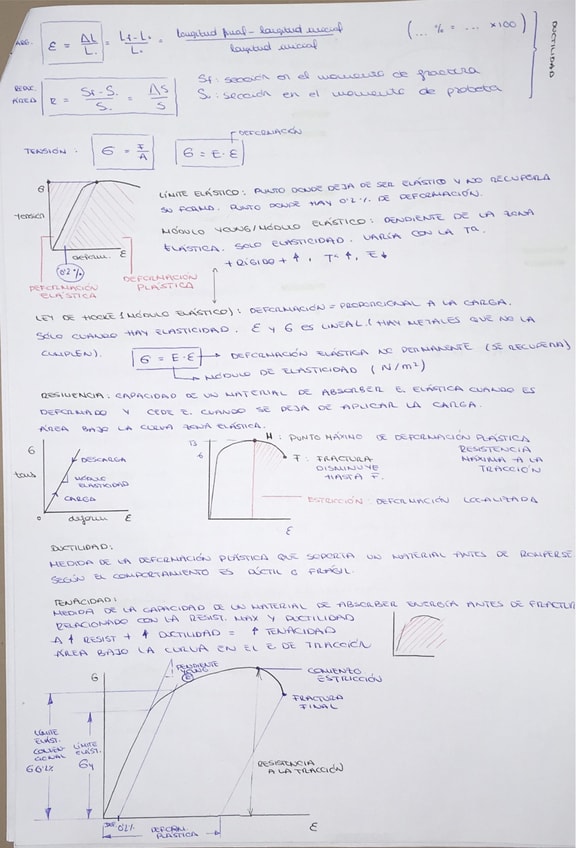 ALG. ε = ΔL / L₀ = Lf - L₀ / L₀ = longitud final - longitud inicial / longitud inicial (... % = ... x100)
DUCTILIDAD
REDUC. ÁREA R = Sf - S₀ / S₀ = ΔS / S
Sf: sección en el momento de fractura
S₀: sección en el momento de probeta
TENSIÓN: σ = F / A σ = E · ε DEFORMACIÓN
LÍMITE ELÁSTICO: PUNTO DONDE DEJA DE SER ELÁSTICO Y NO RECUPERA
SU FORMA. PUNTO DONDE HAY 0'2% DE DEFORMACIÓN.
MÓDULO YOUNG/MÓDULO ELÁSTICO: PENDIENTE DE LA ZONA
ELÁSTICA. SOLO ELASTICIDAD. VARÍA CON LA Tª.
+ RÍGIDO + ↑, Tª ↑, E ↓
σ
TENSIÓN
deform. ε
0'2%
DEFORMACIÓN ELÁSTICA
DEFORMACIÓN PLÁSTICA
LEY DE HOOKE (MÓDULO ELÁSTICO): DEFORMACIÓN = PROPORCIONAL A LA CARGA.
SÓLO CUANDO HAY ELASTICIDAD. ε Y σ ES LINEAL. (HAY METALES QUE NO LA
CUMPLEN).
σ = E · ε → DEFORMACIÓN ELÁSTICA NO PERMANENTE (SE RECUPERA)
→ MÓDULO DE ELASTICIDAD (N/m²)
RESILIENCIA: CAPACIDAD DE UN MATERIAL DE ABSORBER E. ELÁSTICA CUANDO ES
DEFORMADO Y CEDE E. CUANDO SE DEJA DE APLICAR LA CARGA.
ÁREA BAJO LA CURVA ZONA ELÁSTICA.
σ
tens
DESCARGA
MÓDULO ELASTICIDAD
CARGA
0 deform ε
M: PUNTO MÁXIMO DE DEFORMACIÓN PLÁSTICA
RESISTENCIA MÁXIMA A LA TRACCIÓN
F: FRACTURA
DISMINUYE HASTA F.
ESTRICCIÓN: DEFORMACIÓN LOCALIZADA
ε
DUCTILIDAD:
MEDIDA DE LA DEFORMACIÓN PLÁSTICA QUE SOPORTA UN MATERIAL ANTES DE ROMPERSE
SEGÚN EL COMPORTAMIENTO ES DÚCTIL O FRÁGIL.
TENACIDAD:
MEDIDA DE LA CAPACIDAD DE UN MATERIAL DE ABSORBER ENERGÍA ANTES DE FRACTUR
RELACIONADO CON LA RESIST. MAX Y DUCTILIDAD
A ↑ RESIST + ↑ DUCTILIDAD = ↑ TENACIDAD
ÁREA BAJO LA CURVA EN EL E DE TRACCIÓN
σ
PENDIENTE YOUNG E
COMIENZO ESTRICCIÓN
FRACTURA FINAL
LÍMITE ELÁST. CONVENCIONAL σ0'2%
LÍMITE ELÁST. σy
RESISTENCIA A LA TRACCIÓN
0'2% DEFORM. PLÁSTICA
ε